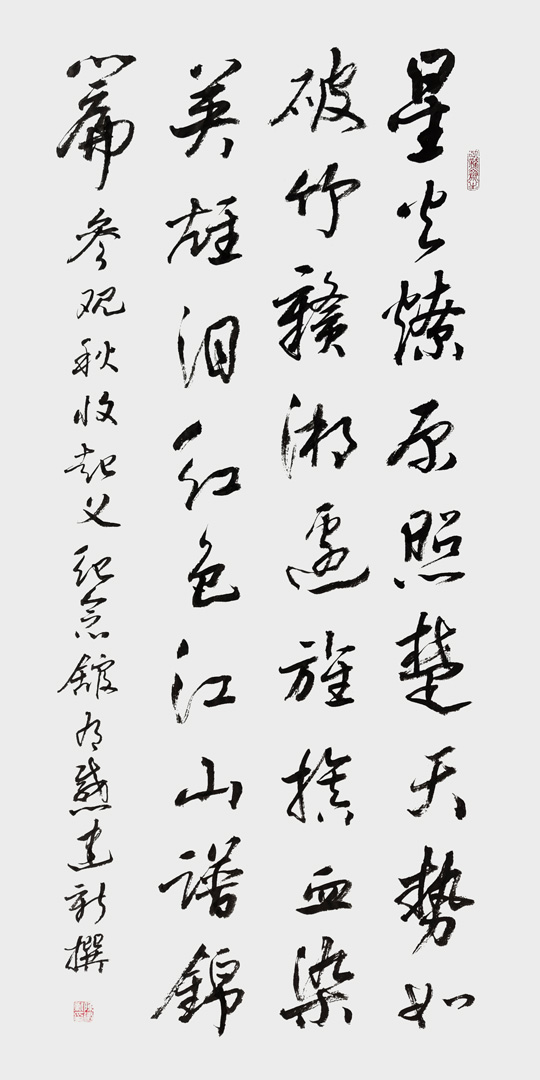 星火燎原照楚天勢如
破竹赣湘邊旌旗血染
英雄泪红色江山譜錦
篇 参观秋收起义纪念館有感建新撰